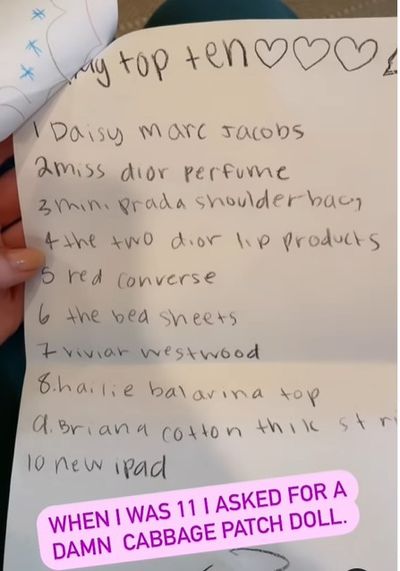 my top ten
1 Daisy marc Jacobs
2 miss dior perfume
3 mini prada shoulder bag
4 the two dior lip products
5 red converse
6 the bed sheets
7 viviar westwood
8. hailie balarina top
9. Briana cotton thik stri
10 new ipad
WHEN I WAS 11 I ASKED FOR A
DAMN CABBAGE PATCH DOLL.